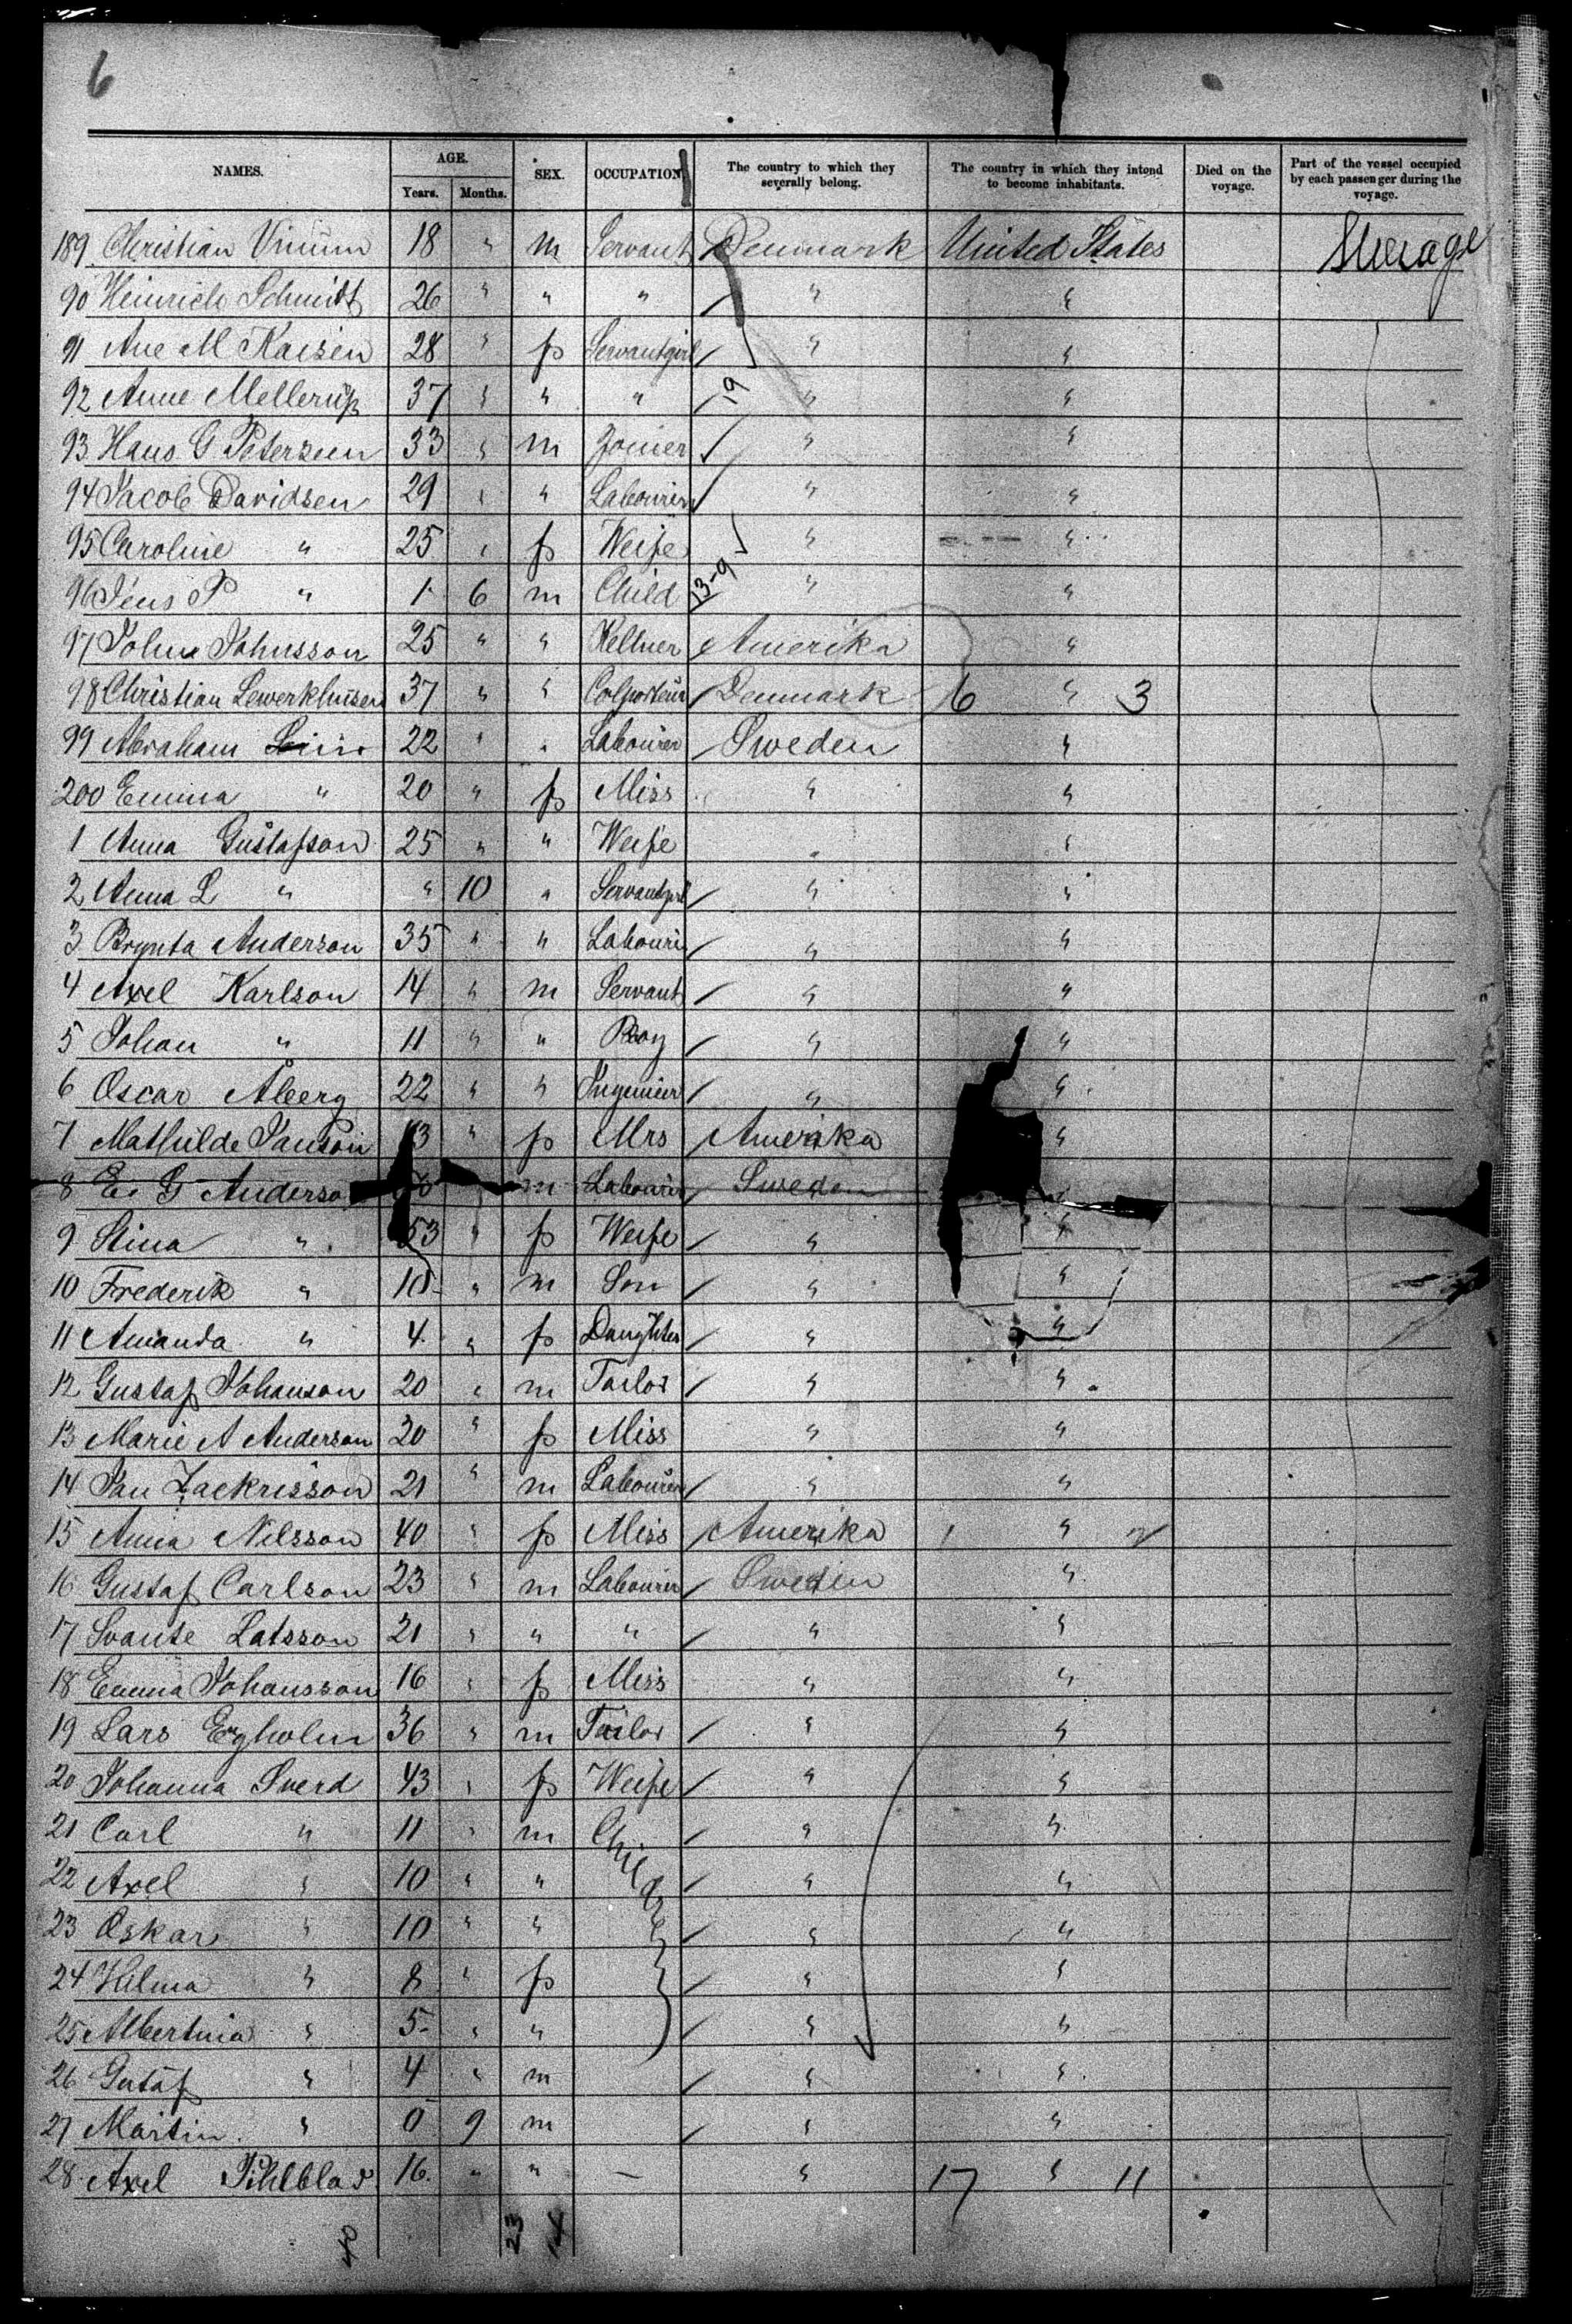 6
NAMES. AGE. Years. Months. SEX. OCCUPATION The country to which they severally belong. The country in which they intend to become inhabitants. Died on the voyage. Part of the vessel occupied by each passenger during the voyage.
189 Christian Vinum 18 " m Servant Denmark United States Steerage
90 Heinrich Schmidt 26 " " " " "
91 Ane M Kaisen 28 " f Servantgirl " "
92 Anne Mellerup 37 " " " 19 " "
93 Hans G Petersen 33 " m Joiner " "
94 Jacob Davidsen 29 " " Labourer " "
95 Caroline " 25 " f Weife " "
96 Jens P " 1 6 m Child 13-9 " "
97 John Johnsson 25 " " Kellner Amerika "
98 Christian Lewerkhusen 37 " " Colporteur Denmark 6 " 3
99 Abraham 22 " " Labourer Sweden "
200 Emma " 20 " f Miss " "
1 Anna Gustafson 25 " " Weife " "
2 Anna L " " 10 " Servantgirl " "
3 Brynta Anderson 35 " " Labourer " "
4 Axel Karlson 14 " m Servant " "
5 Johan " 11 " " Boy " "
6 Oscar Åberg 22 " " Ingenieur " "
7 Mathilde Janson " f Mrs Amerika "
8 E. G Anderson m Labourer Sweden "
9 Stina " 53 " f Weife " "
10 Frederik " 10 " m Son " "
11 Amanda " 4 " f Daughter " "
12 Gustaf Johanson 20 " m Tailor " "
13 Marie A Anderson 20 " f Miss " "
14 Jan Zackrisson 21 " m Labourer " "
15 Anna Nilsson 40 " f Miss Amerika 1 " 2
16 Gustaf Carlson 23 " m Labourer Sweden "
17 Svante Latsson 21 " " " " "
18 Emma Johansson 16 " f Miss " "
19 Lars Egholm 36 " m Tailor " "
20 Johanna Sverd 43 " f Weife " "
21 Carl " 11 " m Children " "
22 Axel " 10 " " " "
23 Oskar " 10 " " " "
24 Hilma " 8 " f " "
25 Albertina " 5 " " " "
26 Gustaf " 4 " m " "
27 Martin " 0 9 m " "
28 Axel Pihlblad 16 " " — " 17 " 11
40 23